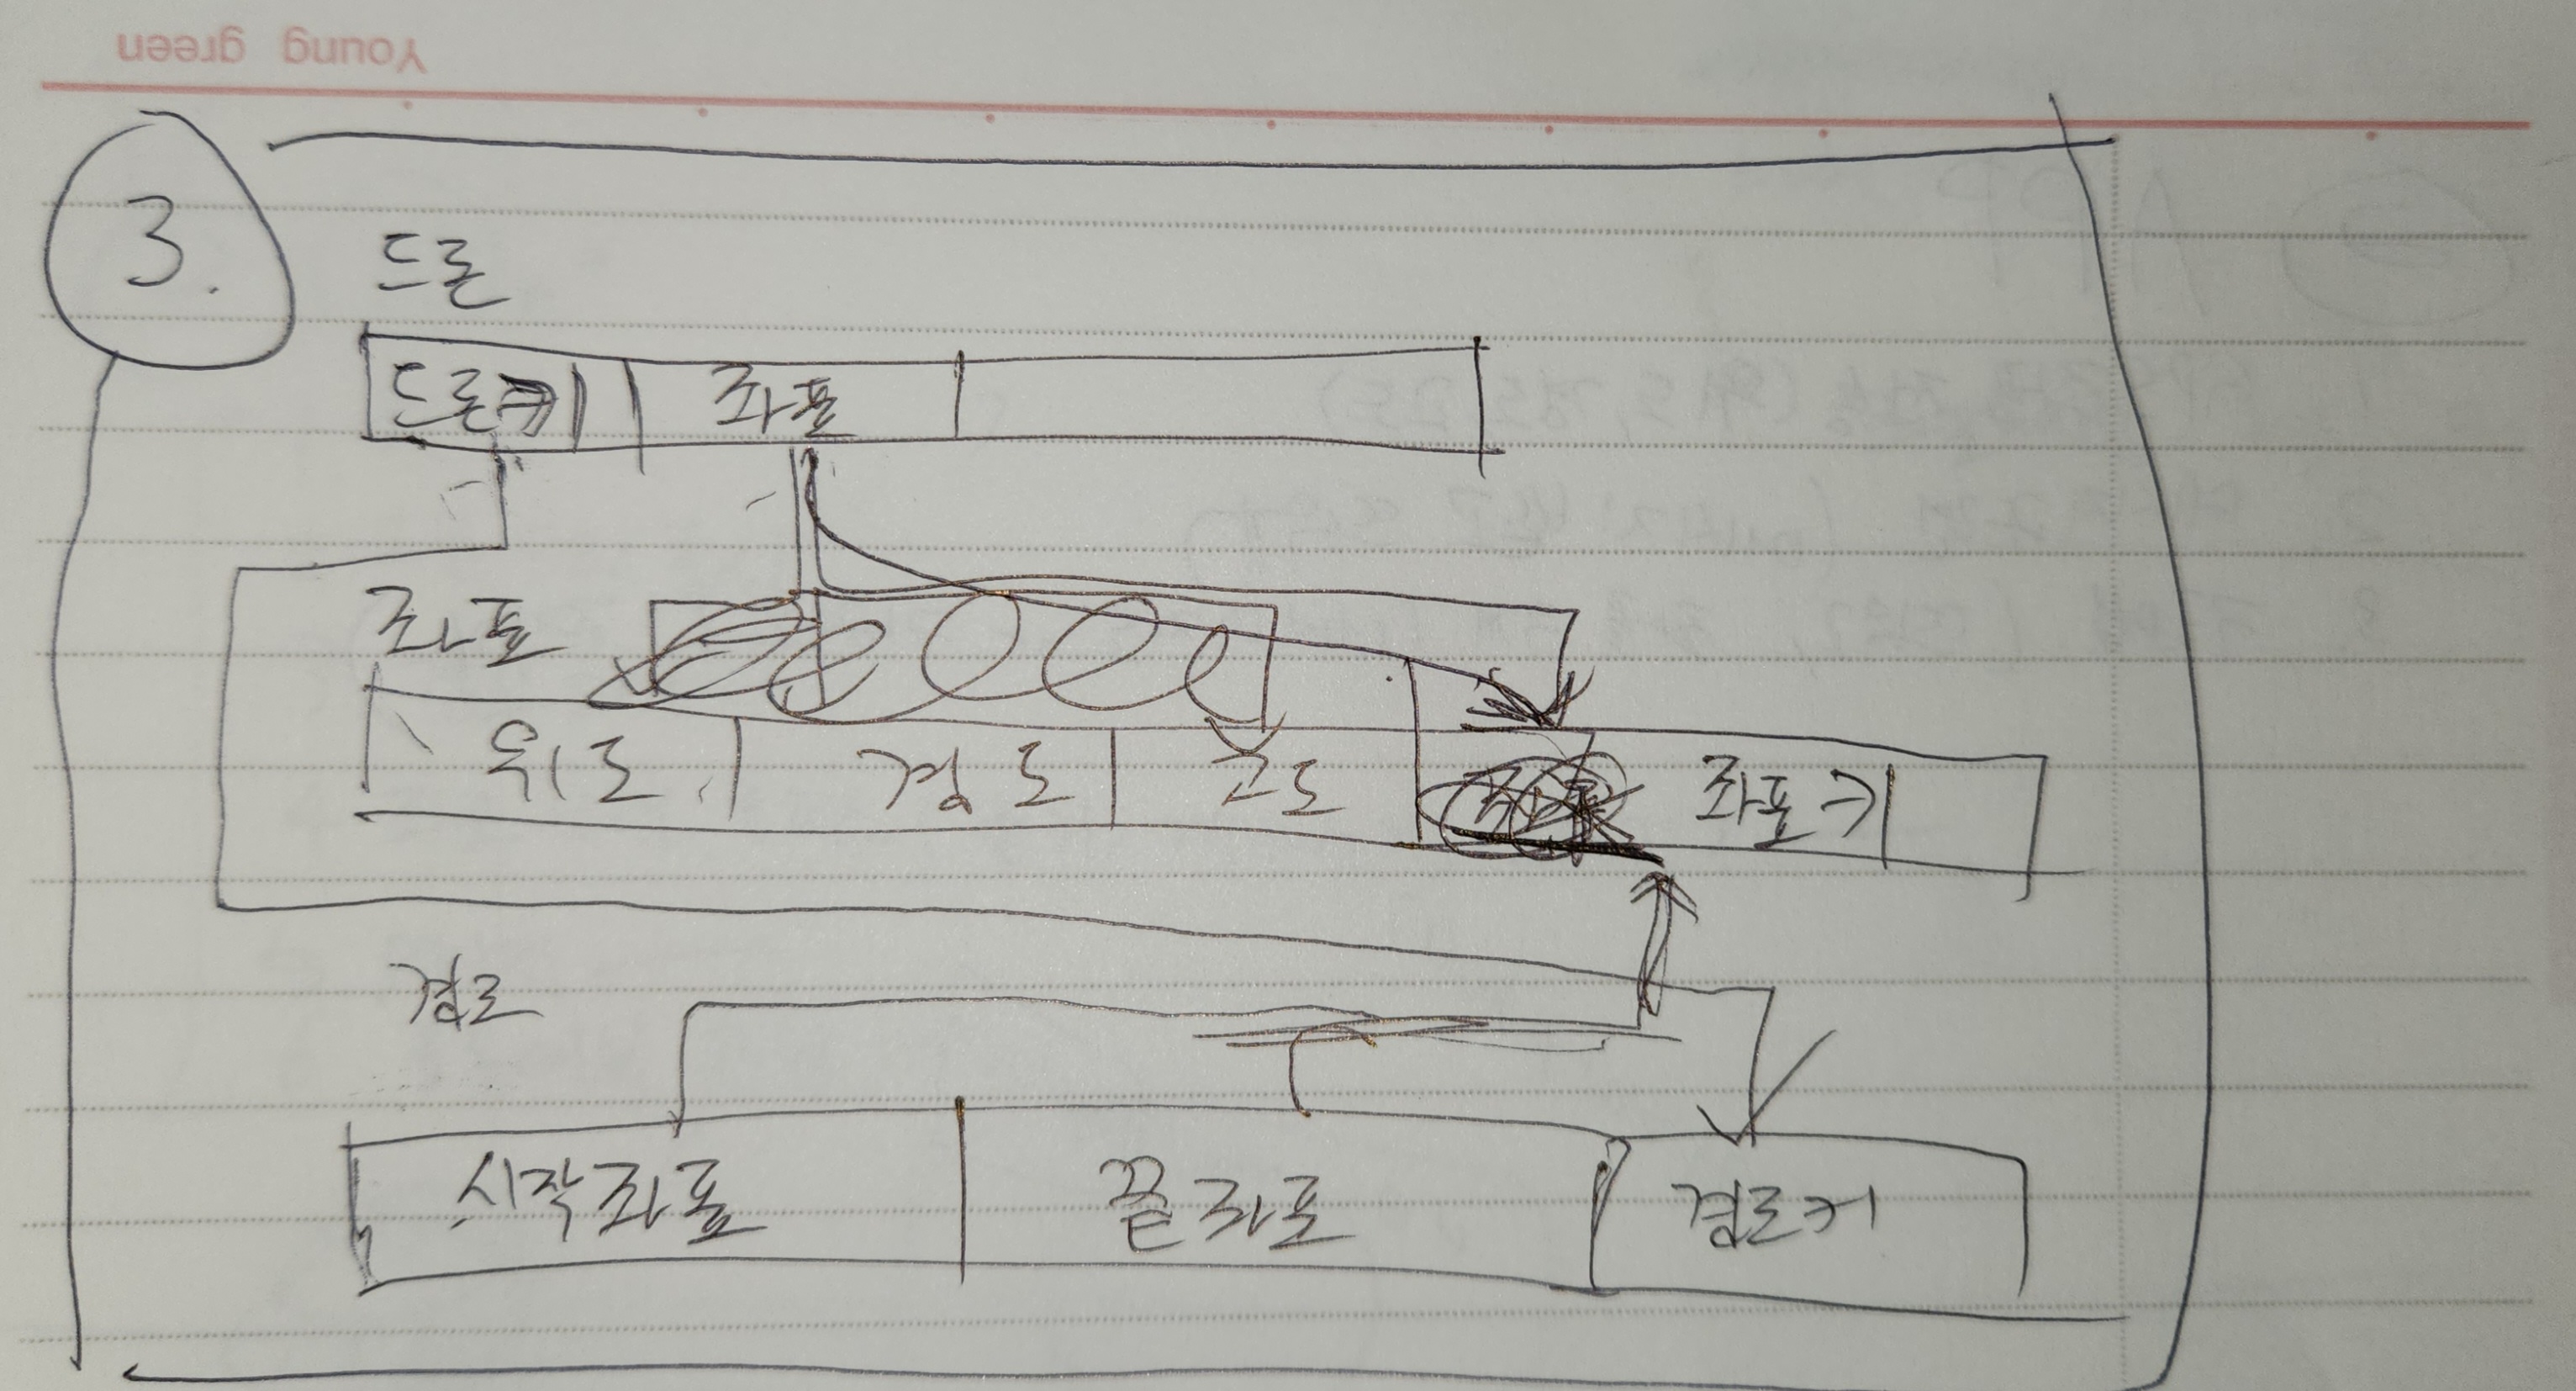 Young green
3.
드론
드론키 좌표
좌표
위도 경도 고도 좌표키
경로
시작좌표 끝좌표 경로키